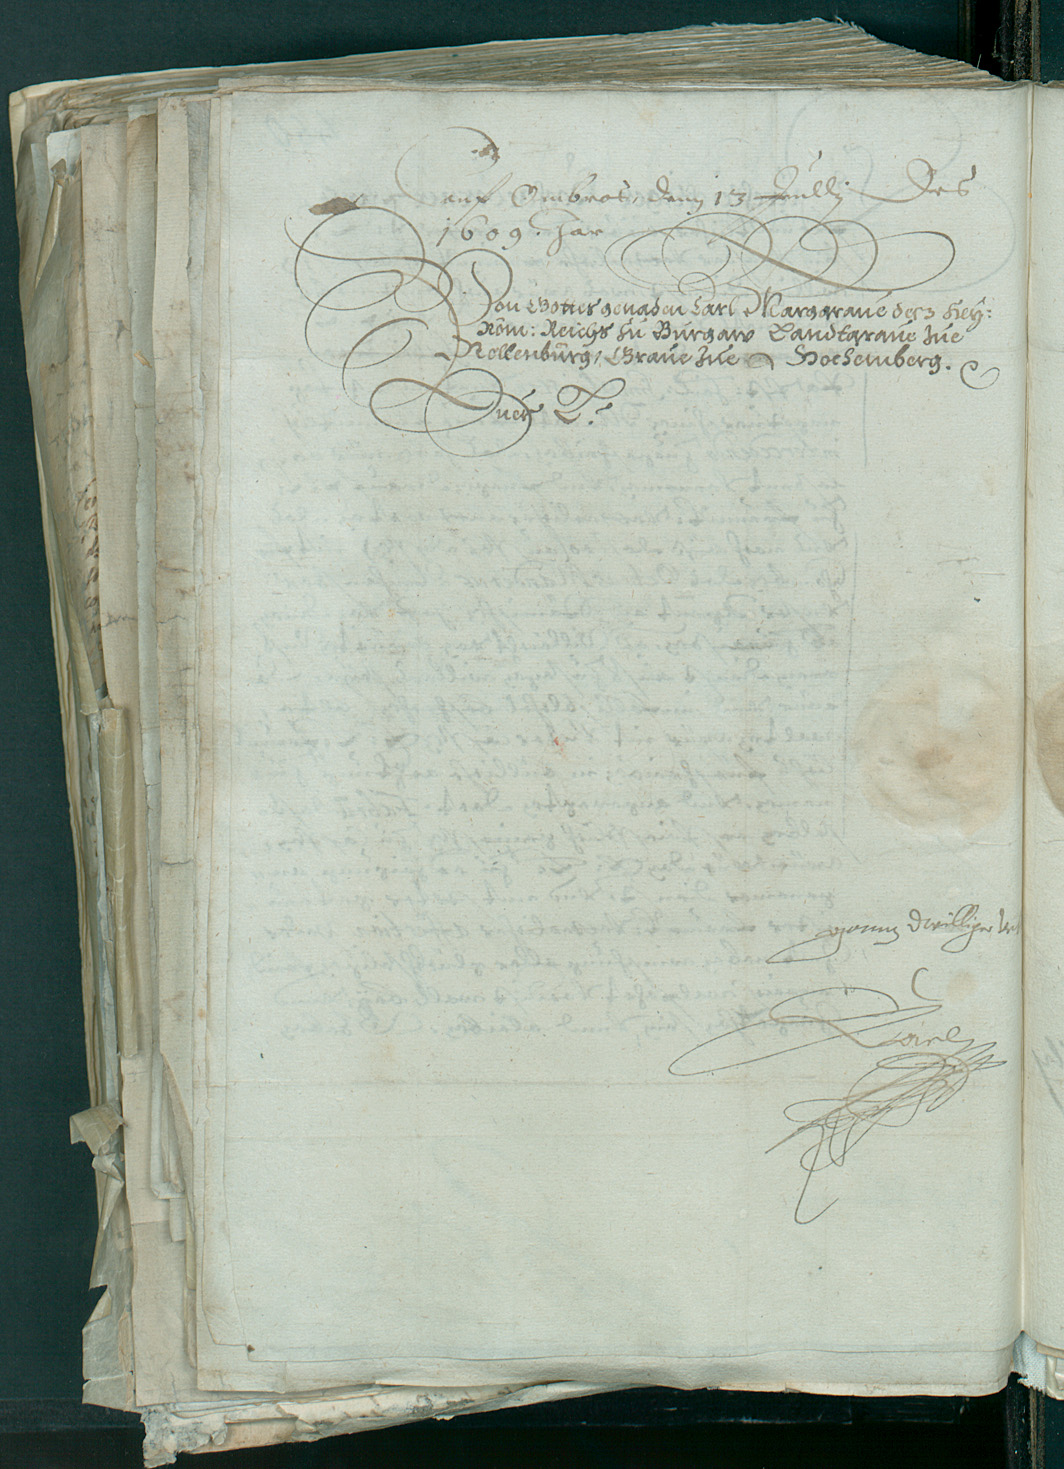 auf Ombras, denn 13 Jullÿ Des
1609. Jar
Von Gottes genaden Carl Marggraue des Heÿ:
Röm: Reichs zu Burgaw Landtgraue zue
Nellenburg, Graue zue Hochemberg.
Euer L:
gannz dwilliger
Carl